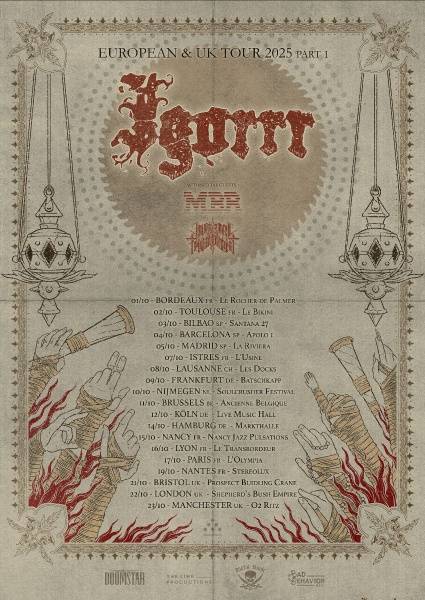 EUROPEAN & UK TOUR 2025 PART 1
Igorrr
MRR
01/10 - BORDEAUX FR - LE ROCHER DE PALMER
02/10 - TOULOUSE FR - LE BIKINI
03/10 - BILBAO SP - SANTANA 27
04/10 - BARCELONA SP - APOLO 1
05/10 - MADRID SP - LA RIVIERA
07/10 - ISTRES FR - L'USINE
08/10 - LAUSANNE CH - LES DOCKS
09/10 - FRANKFURT DE - BATSCHKAPP
10/10 - NIJMEGEN NL - SOULCRUSHER FESTIVAL
11/10 - BRUSSELS BE - ANCIENNE BELGIQUE
12/10 - KÖLN DE - LIVE MUSIC HALL
14/10 - HAMBURG DE - MARKTHALLE
15/10 - NANCY FR - NANCY JAZZ PULSATIONS
16/10 - LYON FR - LE TRANSBORDEUR
17/10 - PARIS FR - L'OLYMPIA
19/10 - NANTES FR - STEREOLUX
21/10 - BRISTOL UK - PROSPECT BUIDLING CRANE
22/10 - LONDON UK - SHEPHERD'S BUSH EMPIRE
23/10 - MANCHESTER UK - O2 RITZ
DOOMSTAR
BAD BEHAVIOR